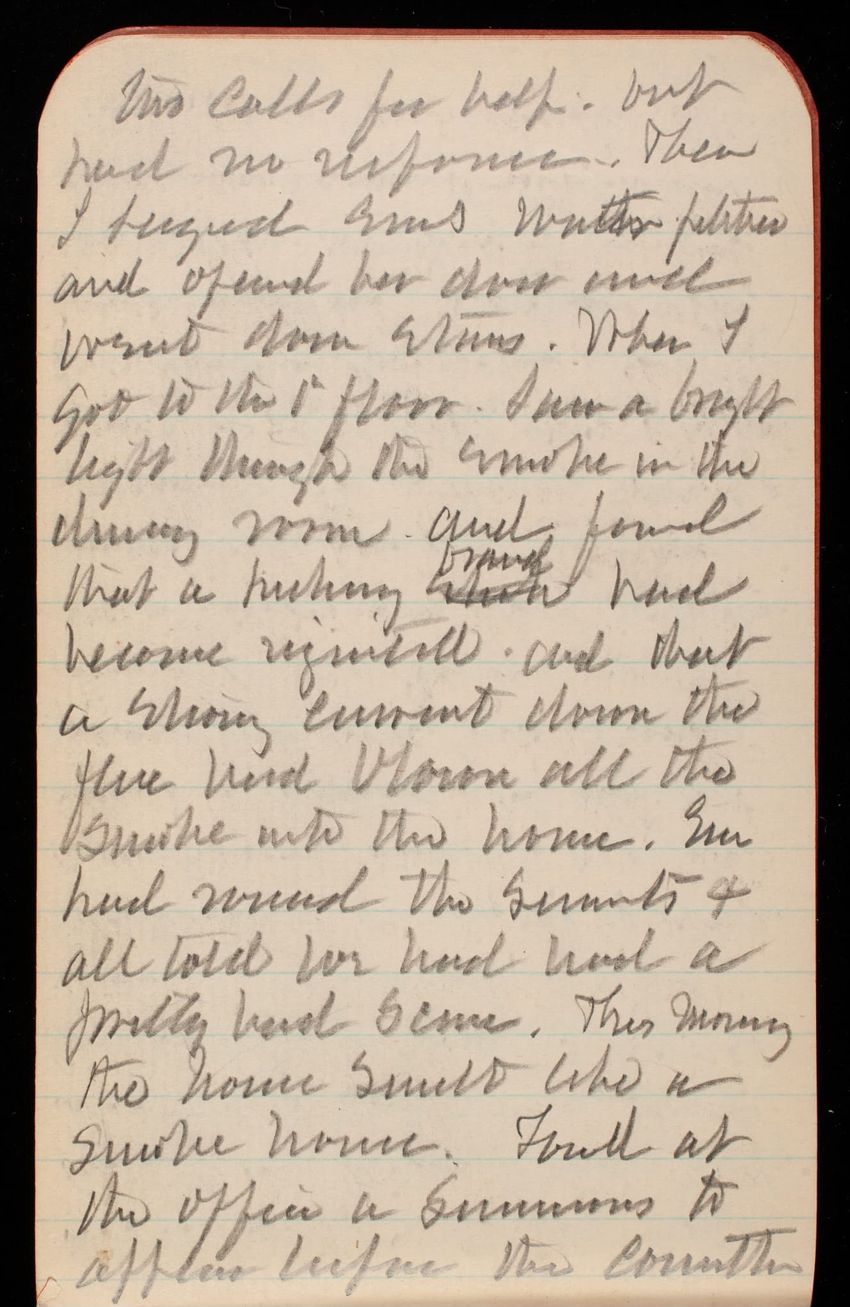 two calls for help. but
had no response. Then
I begged Em's water pitcher
and opened her door and
went down stairs. When I
got to the 1st floor. I saw a bright
light through the smoke in the
dining room. and found
that a brand had
become reignited. and that
a strong current down the
flue had blown all the
smoke into the house. Em
had roused the servants &
all told we had had a
pretty bad scene. This morning
the house smelt like a
smoke house. Found at
the office a summons to
appear before the Committee